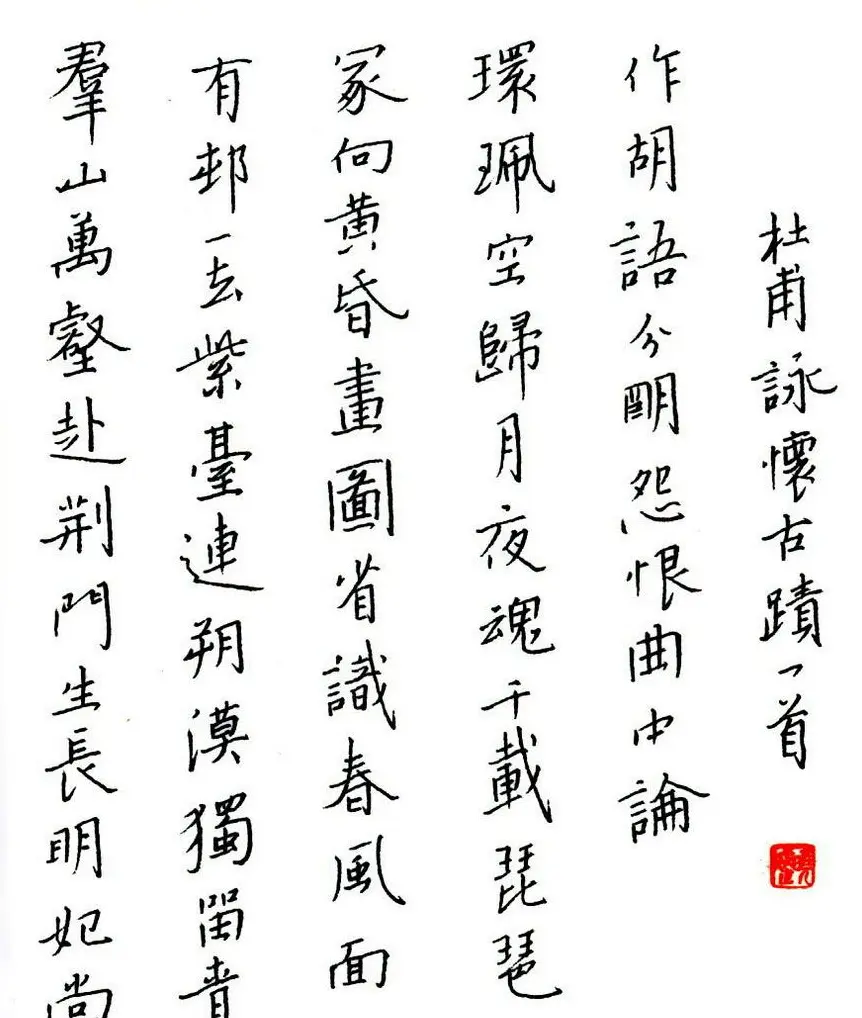 羣山萬壑赴荊門生長明妃尚
有邨一去紫臺連朔漠獨留青
冢向黄昏畫圖省識春風面
環珮空歸月夜魂千載琵琶
作胡語分朙怨恨曲中論
杜甫詠懷古蹟一首